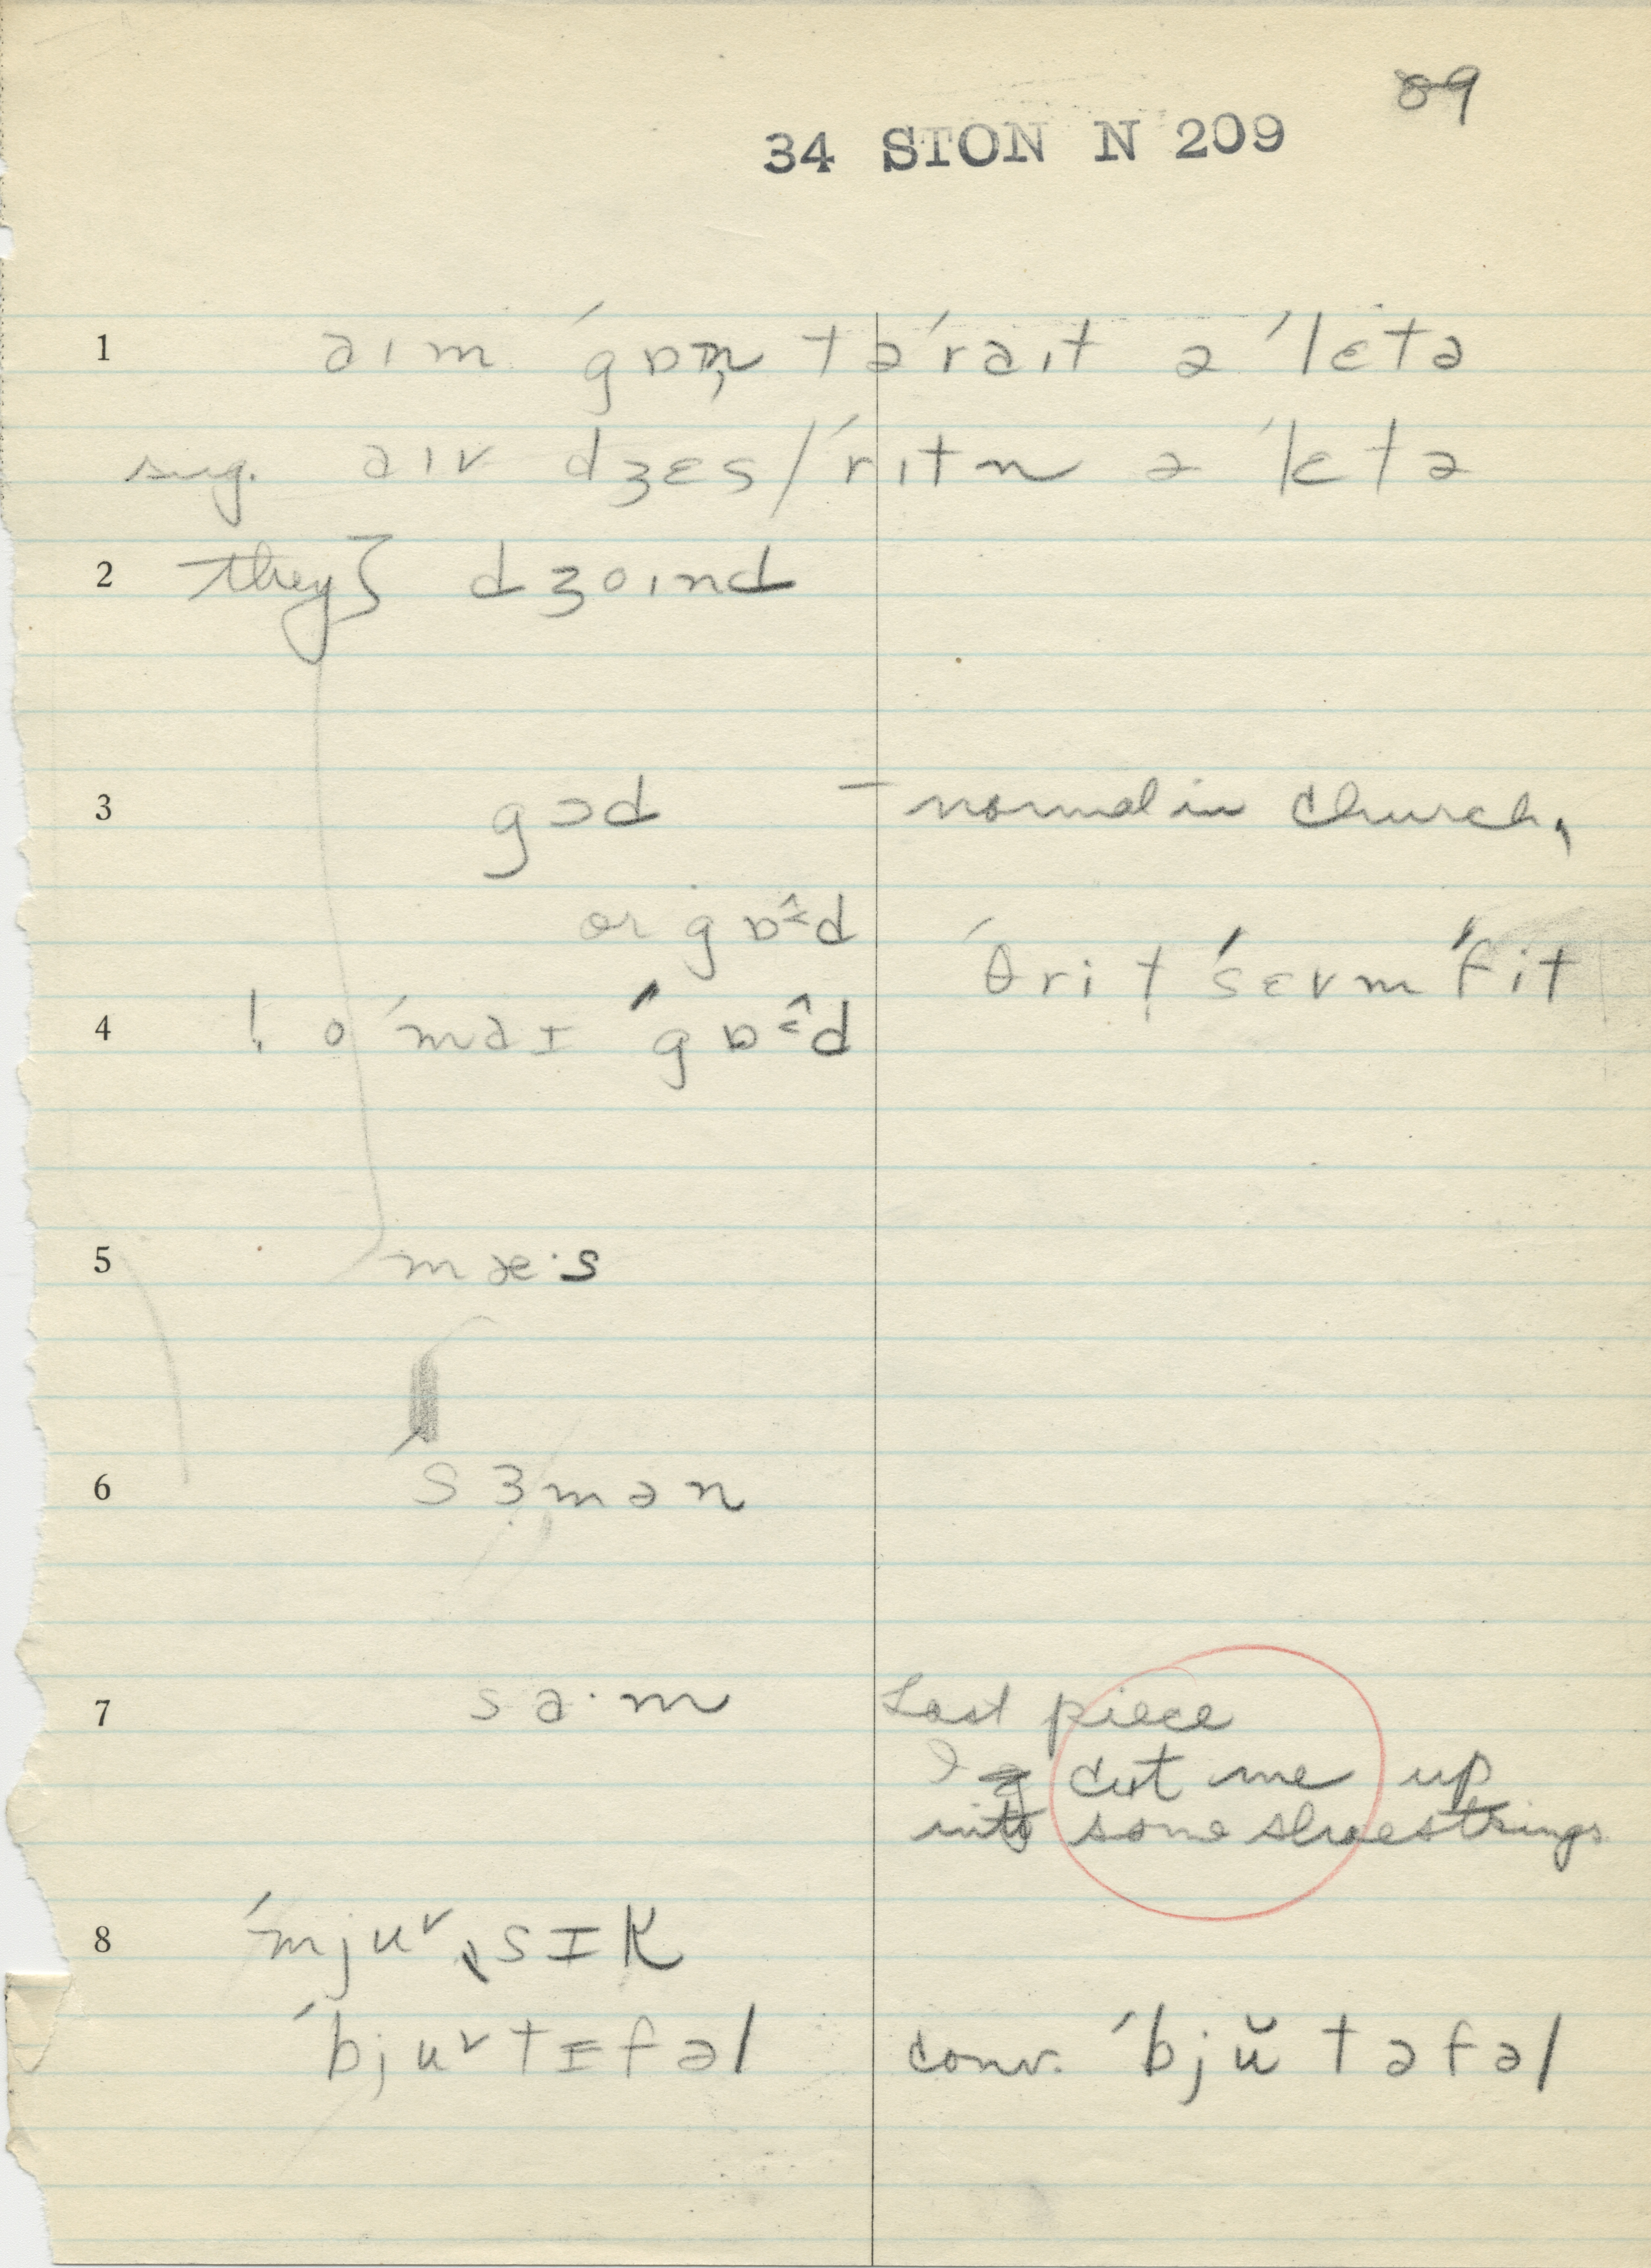 89
34 STON N 209
1 aɪm ˈgɒn tə ˈraɪt ə ˈlɛtə
sug. aɪv dʒɛs/ˈrɪtn ə ˈlɛtə
2 they} dʒoɪnd
3 gɔd – normal in church,
or gɒ̂d
ˈθri t ˈsɛvm ˈfit
4 ! o ˈmaɪ ˈgɒ̂d
5 mæ·s
6 ˈsɜmən
7 sa·m Last piece
I cut me up
into some shoestrings
8 ˈmjuˌsɪk
ˈbjutɪfəl conv. ˈbjŭtəfəl